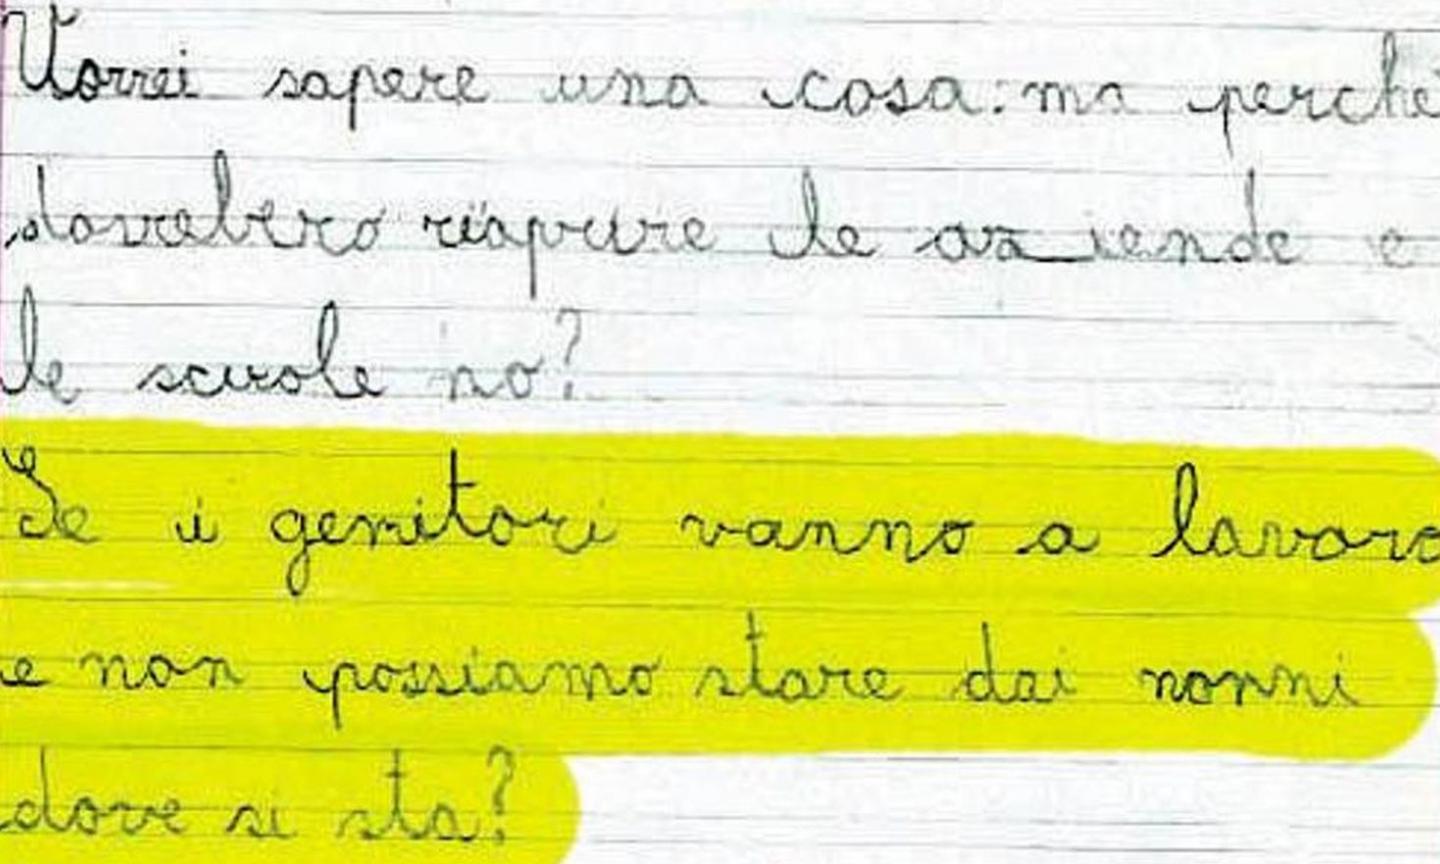 Vorrei sapere una cosa: ma perché
dovrebbero riaprire le aziende e
le scuole no?
Se i genitori vanno a lavoro
e non possiamo stare dai nonni
dove si sta?